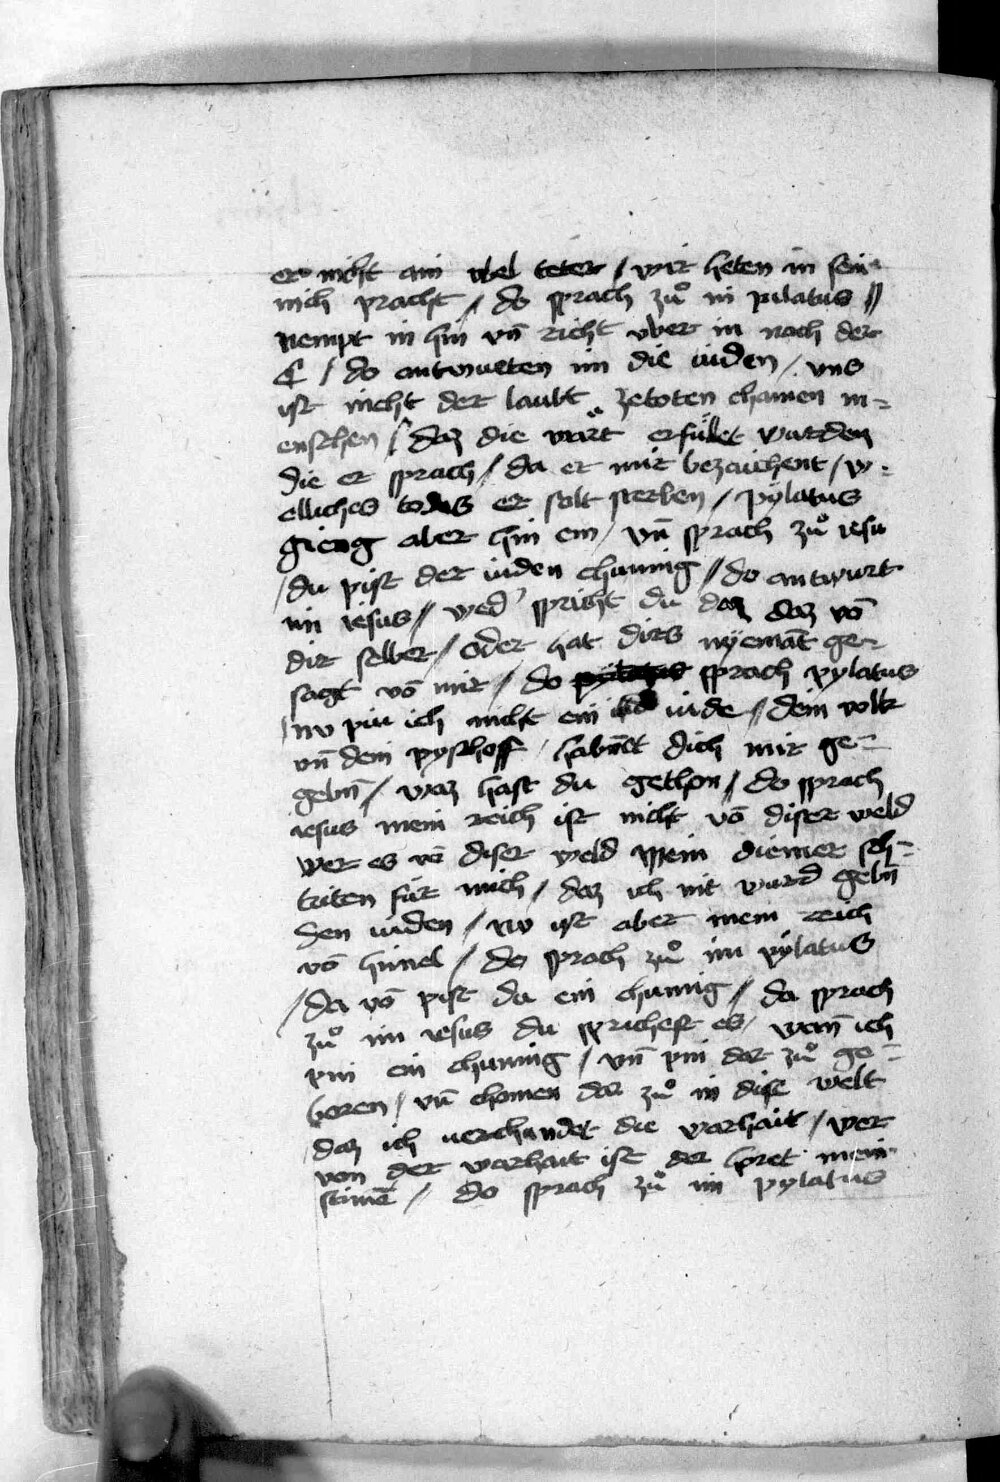 er nicht ain vbel teter / wir heten in sein
nich pracht // do sprach zuͦ in pilatus //
Nempt in hin vn̄ richt vber in nach der
E / do antwurten im die iuden / vns
ist nicht der laubt zetoten chainen m-
enschen / daz die wart erfullet wurden
die er sprach / da er mir bezaichent / w-
elliches todes er solt sterben / pylatus
gieng aber hin ein / vn̄ sprach zuͦ iesu
/ du pist der iuden chunnig // do antwurt
im iesus // wed' sprichst du daz daz vō
dir selber / oder hat dirs nyemāt ge-
sagt vō mir / do sprach pylatus
/ nv pin ich nicht ein iude // dein volk
vn̄ dein pyschoff / habn̄t dich mir ge-
gebn̄ / waz hast du gethon / do sprach
iesus mein reich ist nicht vō diser weld
wer es vō diser weld mein diener sch-
triten für mich / daz ich nit wurd gebn̄
den iuden / nv ist aber mein reich
vō himel / do sprach zuͦ im pylatus
/ da vō pist du ein chunnig // da sprach
zuͦ im iesus du sprichest es / wann̄ ich
pin ein chunnig / vn̄ pin dar zuͦ ge-
boren / vn̄ chomen dar zuͦ in dise welt
daz ich verchundet die warhait / wer
von der warhait ist der horet mein
stimē / do sprach zuͦ im pylatus